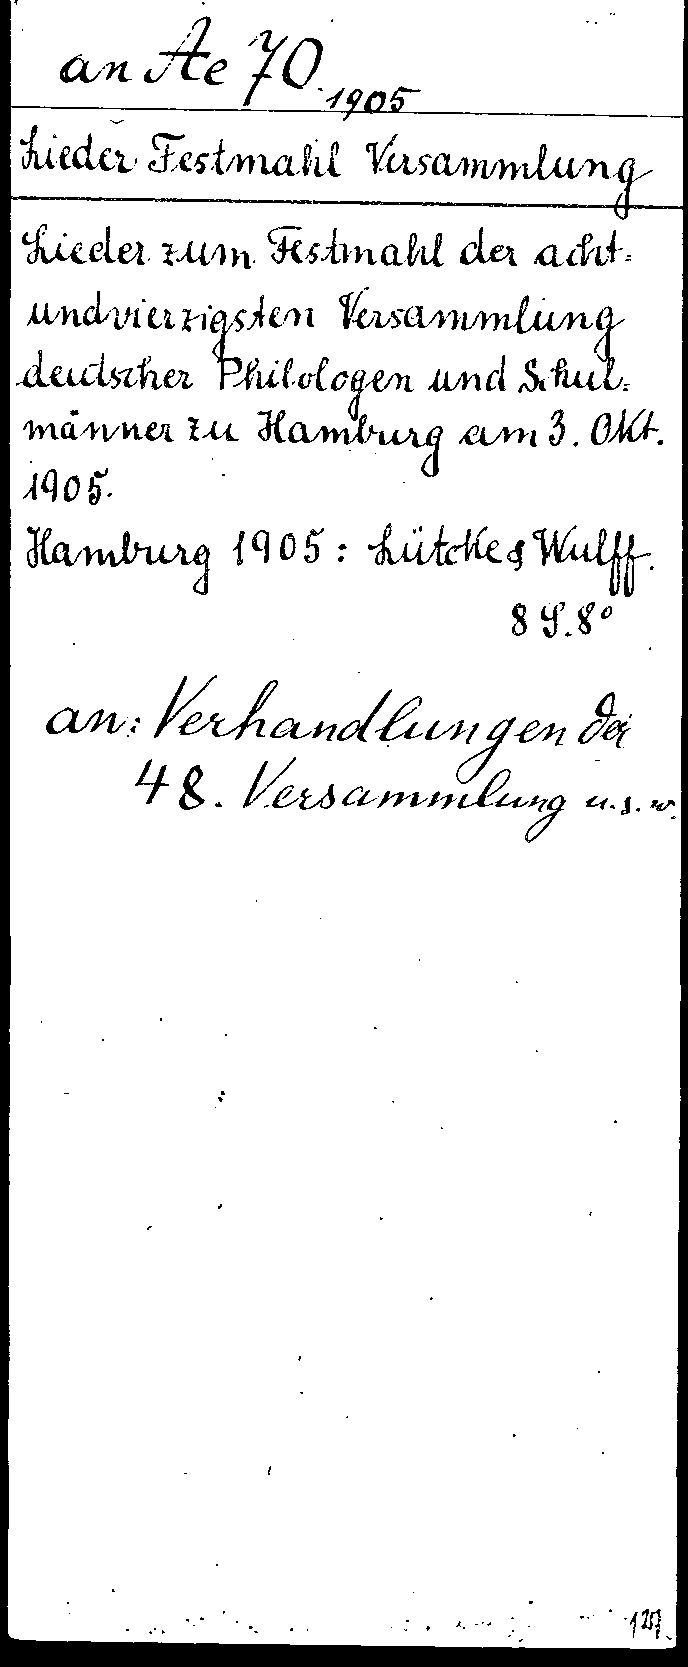 an Ae 70.1905
Lieder Festmahl Versammlung
Lieder zum Festmahl der acht=
undvierzigsten Versammlung
deutscher Philologen und Schul=
männer zu Hamburg am 3. Okt.
1905.
Hamburg 1905: Lütcke & Wulff.
8 S. 8°
an: Verhandlungen der
48. Versammlung u.s.w.